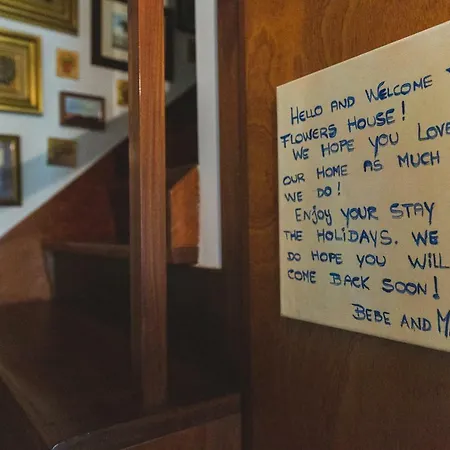 HELLO AND WELCOME
FLOWERS HOUSE!
WE HOPE YOU LOVE
OUR HOME AS MUCH
WE DO!
ENJOY YOUR STAY
THE HOLIDAYS. WE
DO HOPE YOU WILL
COME BACK SOON!
BEBE AND